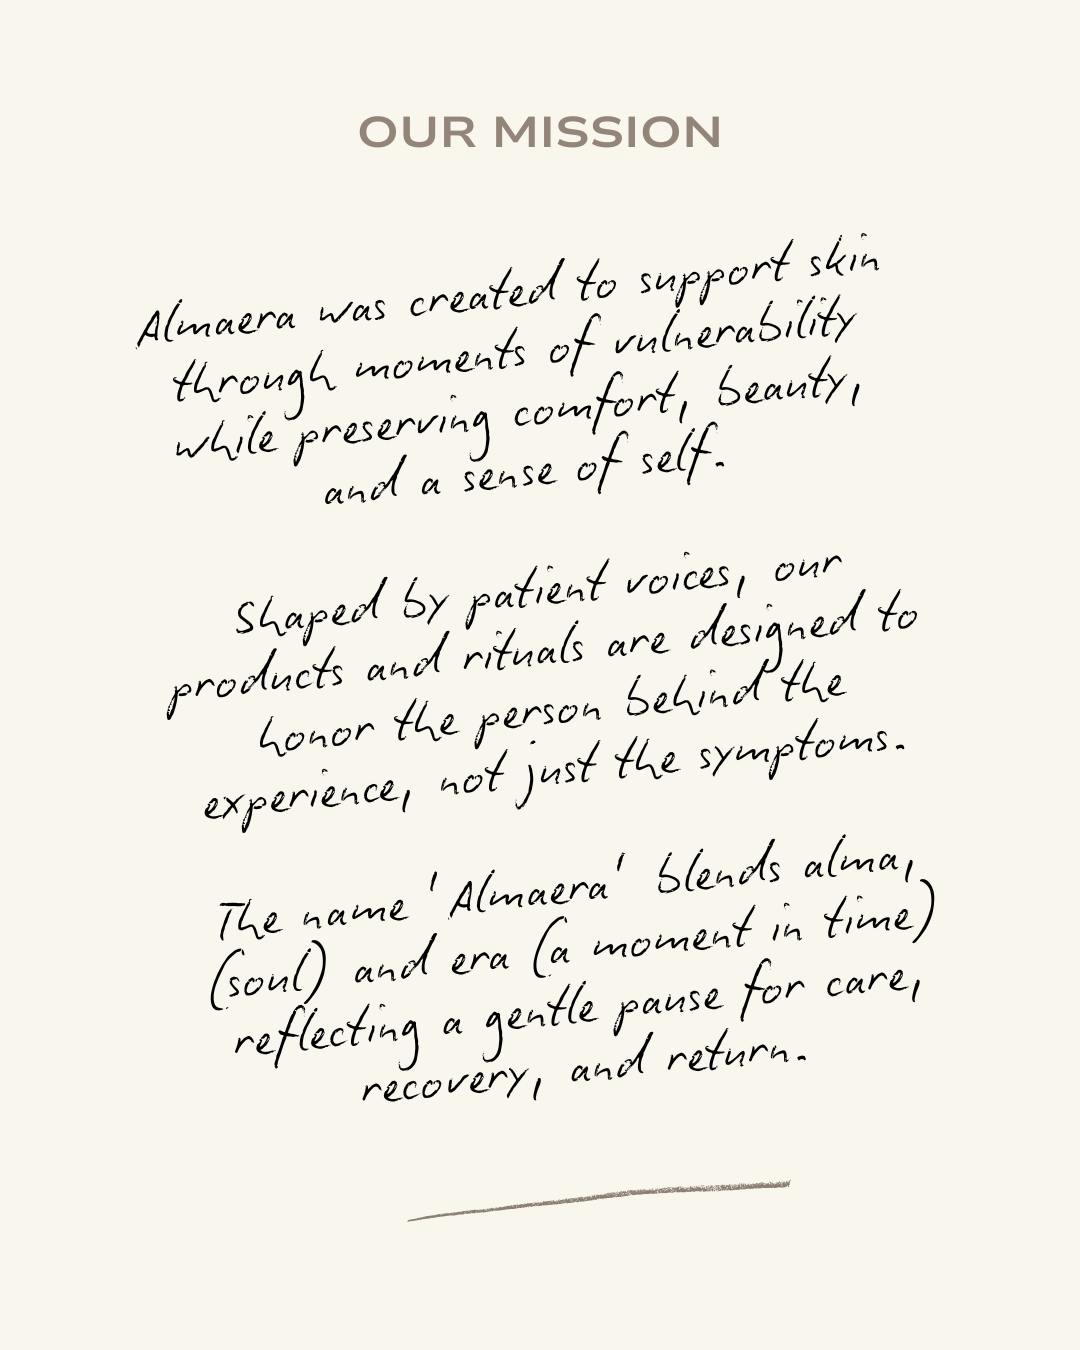 OUR MISSION
Almaera was created to support skin
through moments of vulnerability
while preserving comfort, beauty,
and a sense of self.
Shaped by patient voices, our
products and rituals are designed to
honor the person behind the
experience, not just the symptoms.
The name 'Almaera' blends alma,
(soul) and era (a moment in time)
reflecting a gentle pause for care,
recovery, and return.